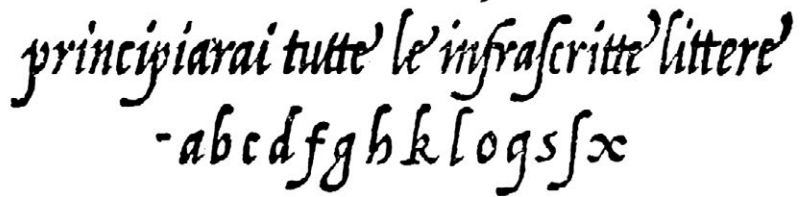 principiarai tutte le infraſcritte littere
- a b c d f g h k l o q s ſ x